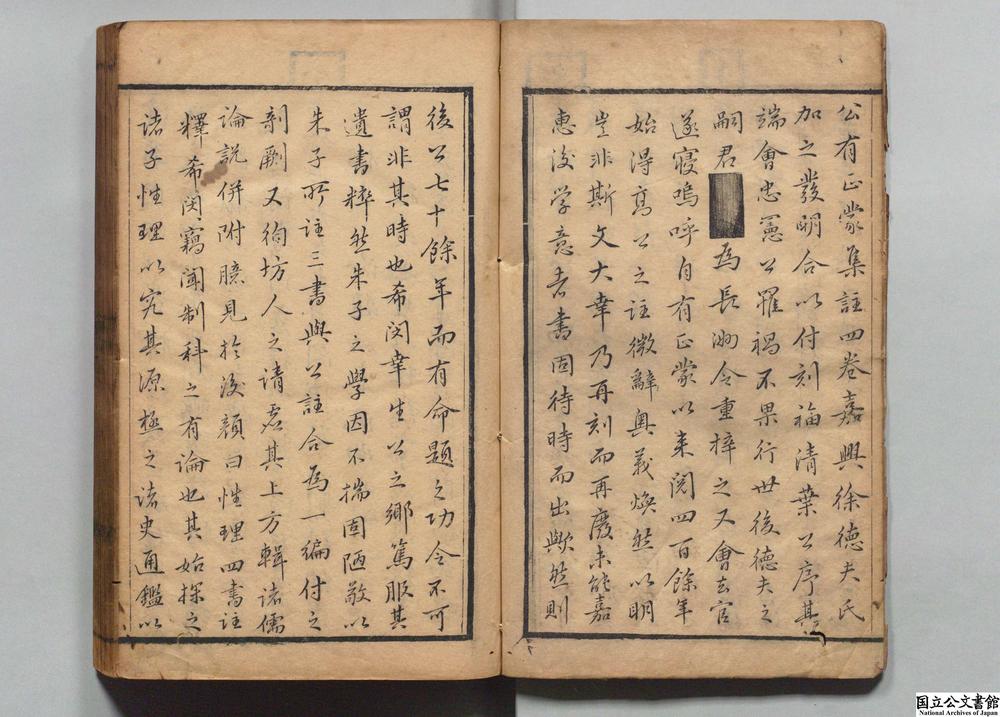 公有正蒙集註四卷嘉興徐德夫氏
加之發明合以付刻福清葉公序其
端會忠憲公罹禍不果行世後德夫之
嗣君 為長洲令重梓之又會去官
遂寢嗚呼自有正蒙以来閱四百餘年
始得髙公之註微辭奧義煥然以明
豈非斯文大幸乃再刻而再廢未能嘉
惠後学意者書固待時而出歟然則
後公七十餘年而有命題之功令不可
謂非其時也希闵幸生公之鄉篤服其
遺書粹然朱子之學因不揣固陋敬以
朱子所註三書與公註合為一編付之
剞劂又徇坊人之請志其上方輯諸儒
論説併附臆見於後顏曰性理四書註
釋希闵竊聞制科之有論也其始採之
诸子性理以究其源極之诸史通鑑以
国立公文書館
National Archives of Japan